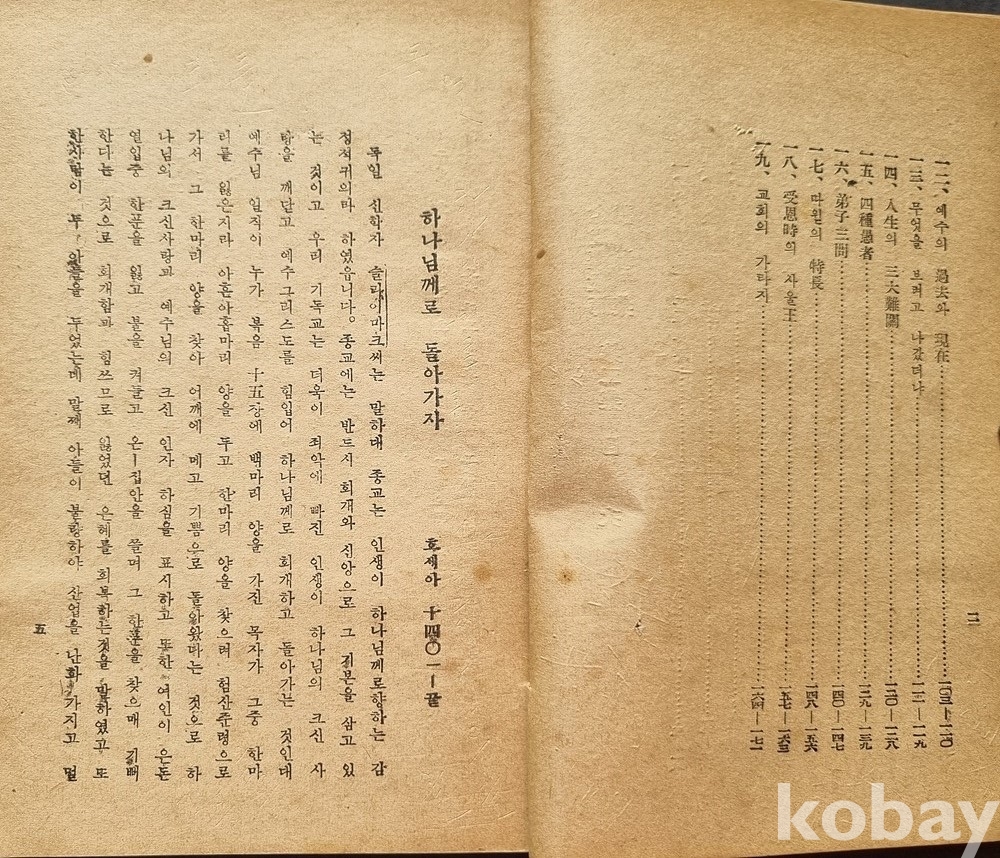 一二、예수의 過去와 現在………一〇三—一一〇
一三、무엇을 브려고 나갔더냐………一一一—一一九
一四、人生의 三大難關………一二〇—一二八
一五、四種愚者………一二九—一三九
一六、弟子三問………一四〇—一四七
一七、다윌의 特長………一四八—一五六
一八、受恩時의 사울王………一五七—一六三
一九、교회의 가타지………一六四—一七一
二
하나님께로 돌아가자 호세아 十四〇一—끝
독일 신학자 슬라이마크씨는 말하대 종교는 인생이 하나님께로향하는 감
정석귀의라 하였읍니다。종교에는 반드시 회개와 신앙으로 그 기본을 삼고 있
는 것이고 우리 기독교는 더욱이 죄악에 빠진 인생이 하나님의 크신 사
랑을 깨닫고 예수그리스도를 힘입어 하나님께로 회개하고 돌아가는 것인대
예수님 일직이 누가 복음 十五장에 백마리 양을 가진 목자가 그중 한마
리를 잃은지라 아흔아홉마리 양을 두고 한마리 양을 찾으려 험산준령으로
가서 그 한마리 양을 찾아 어깨에 메고 기쁨으로 돌아왔다는 것으로 하
나님의 크신사랑과 예수님의 크신 인자 하심을 표시하고 또한 여인이 은돈
열입중 한푼을 잃고 불을 켜들고 온ㅣ집안을 쓸며 그 한푼을 찾으매 기뻐
한다는 것으로 회개함과 힘쓰므로 잃었던 은혜를 회복하는것을 말하였고 또
한사람이 두 아들을 두었는데 말째 아들이 불량하야 산업을 난화 가지고 멀
五